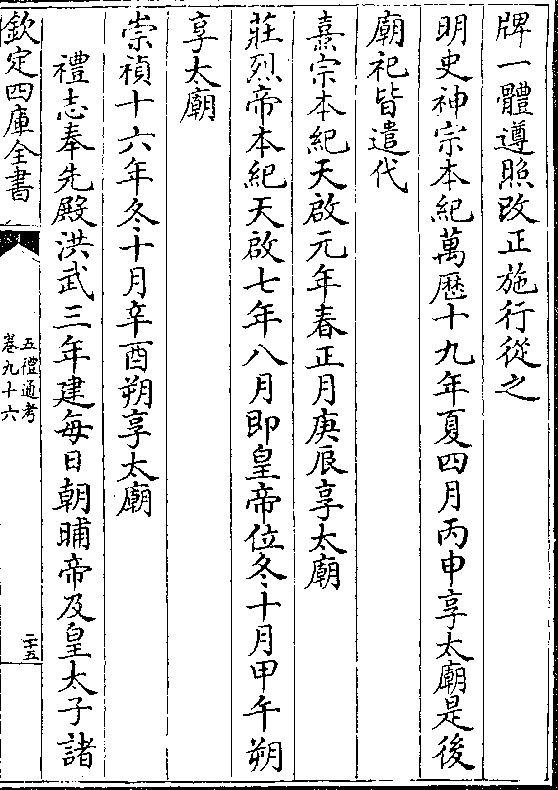 牌一體遵照改正施行從之
明史神宗本紀萬歷十九年夏四月丙申享太廟是後
廟祀皆遣代
熹宗本紀天啟元年春正月庚辰享太廟
莊烈帝本紀天啟七年八月即皇帝位冬十月甲午朔
享太廟
崇禎十六年冬十月辛酉朔享太廟
禮志奉先殿洪武三年建每日朝晡帝及皇太子諸
欽定四庫全書
五禮通考
卷九十六
二十五